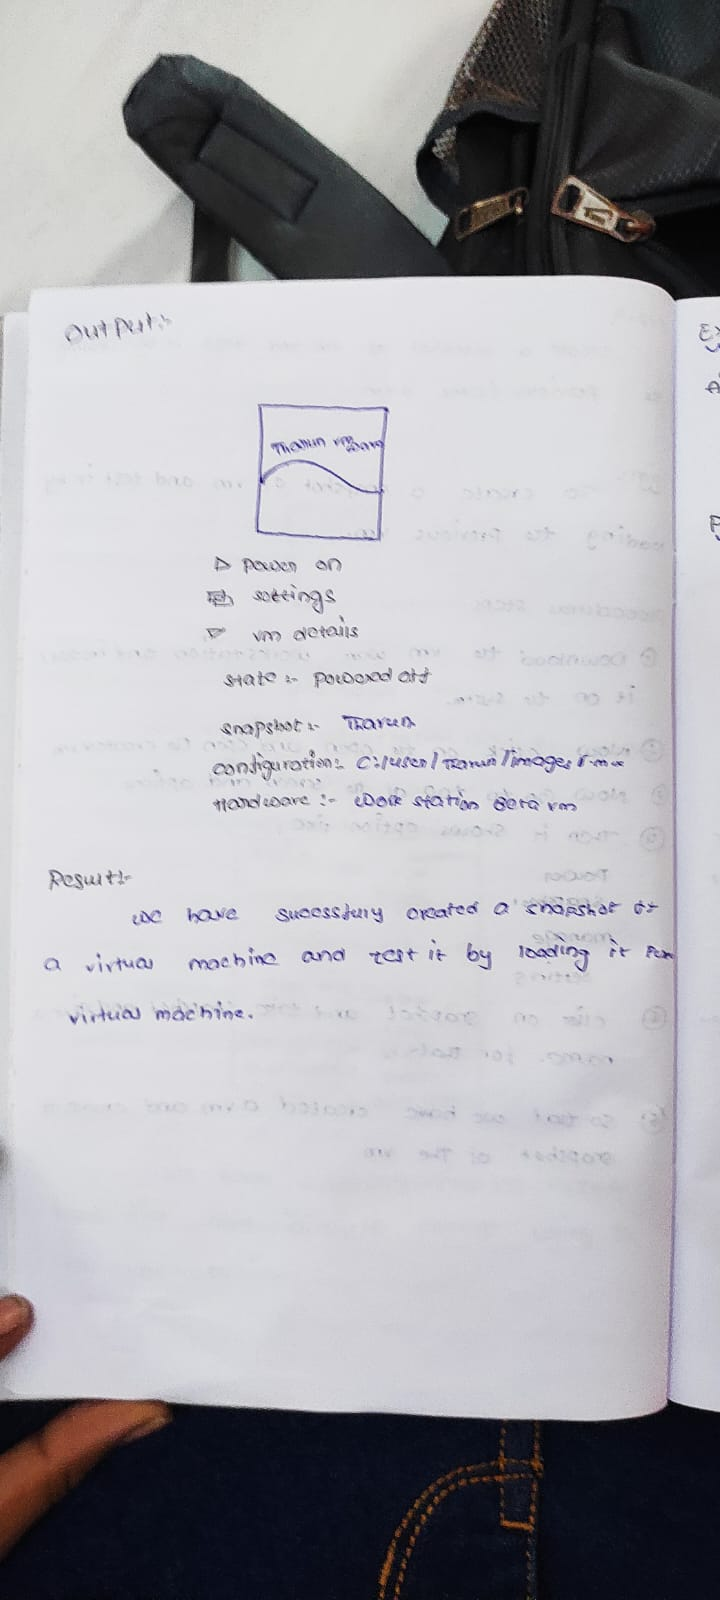 Output:-
Tharun vm
▷ power on
settings
▽ vm details
state :- powered off
snapshot :- Tharun
configuration:- C:/user/Tharun/images/
Hardware :- Work station Beta vm
Result:-
We have sucessfury created a snapshot of
a virtual machine and test it by loading it
virtual machine.